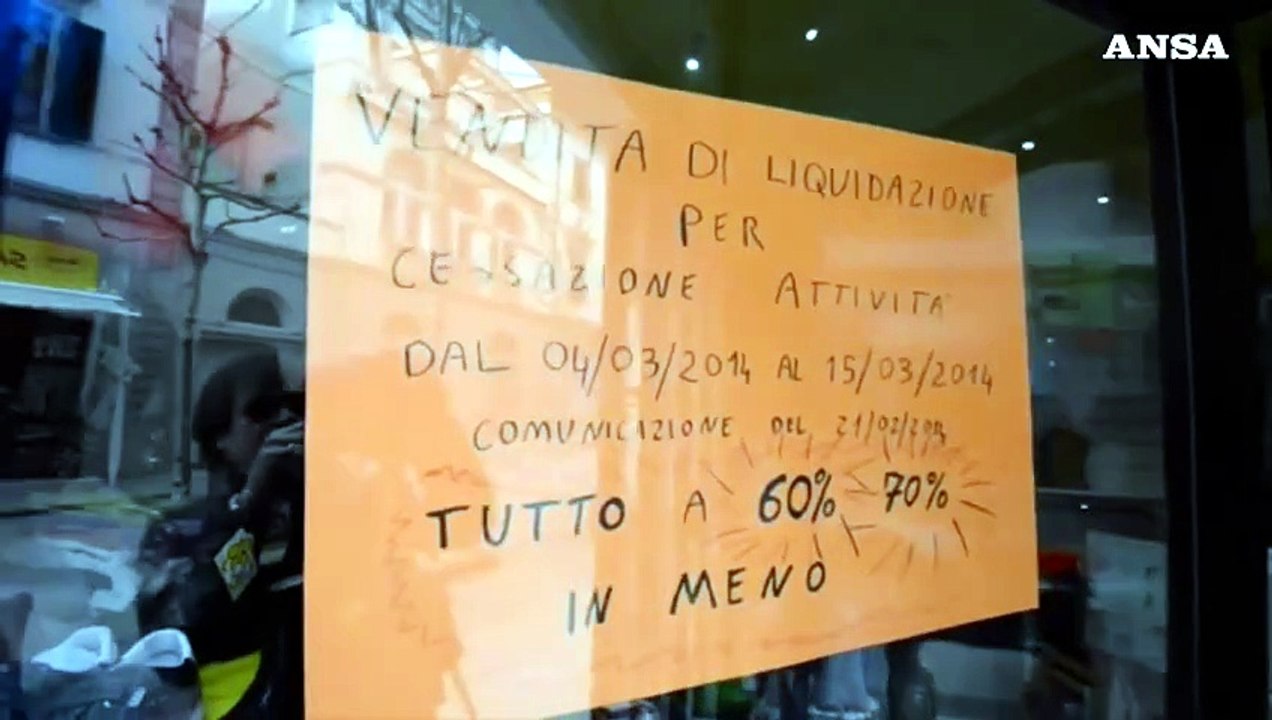 ANSA
VENDITA DI LIQUIDAZIONE
PER
CESSAZIONE ATTIVITA'
DAL 04/03/2014 AL 15/03/2014
COMUNICAZIONE DEL 21/02/2014
TUTTO A 60% 70%
IN MENO